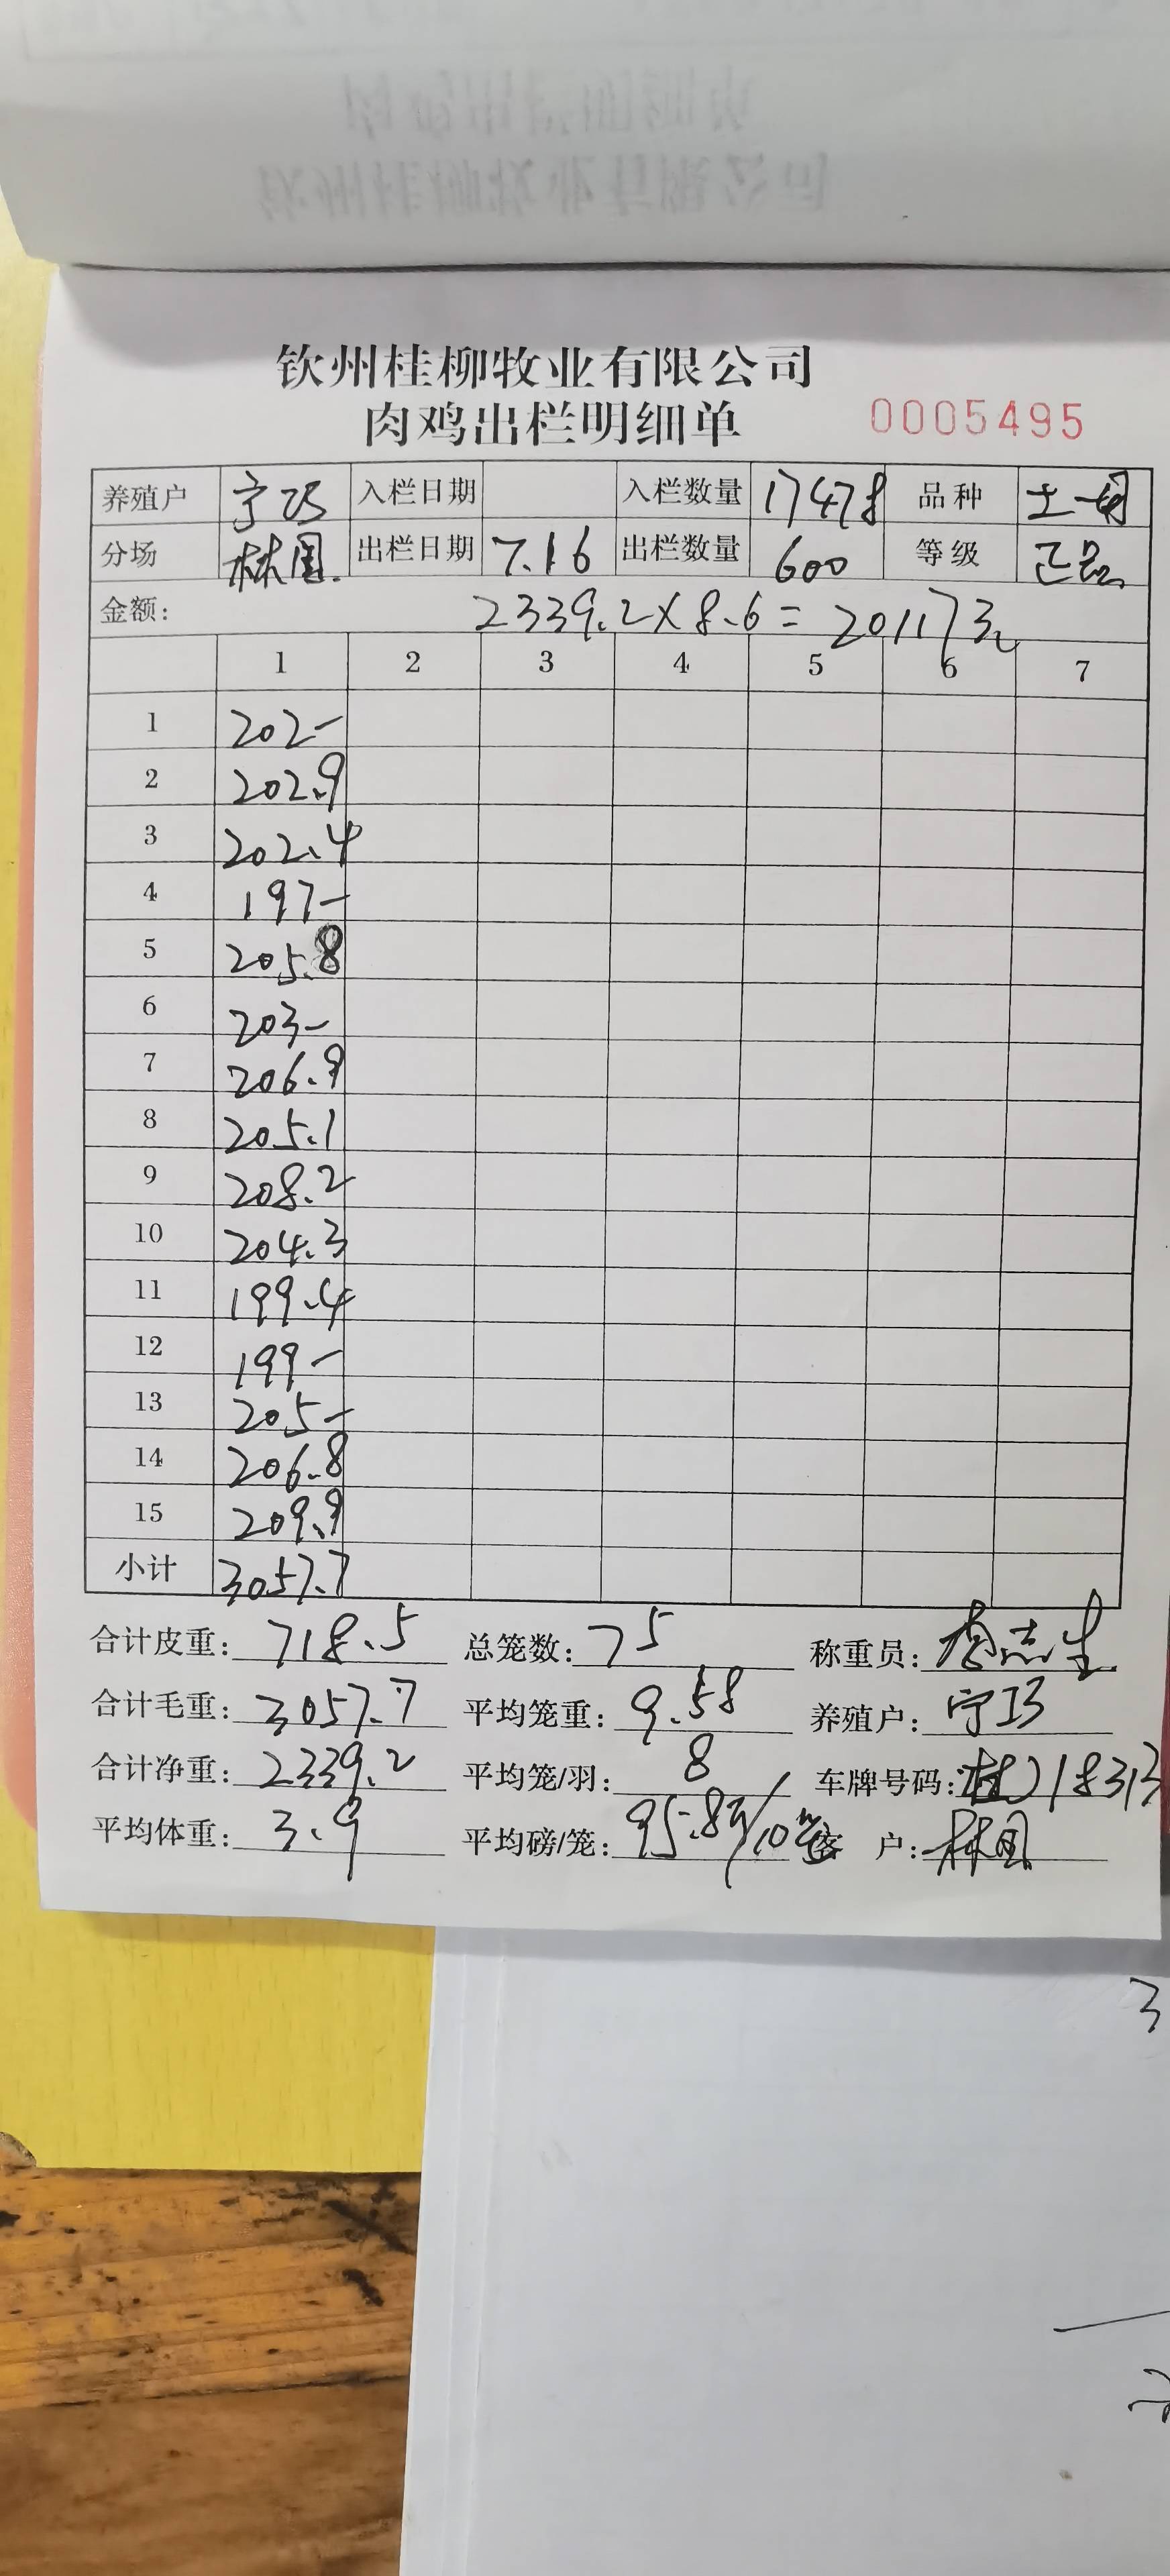 钦州桂柳牧业有限公司
肉鸡出栏明细单 0005495
养殖户 宁巧 入栏日期 入栏数量 17478 品种 土一
分场 林凤 出栏日期 7.16 出栏数量 600 等级 正品
金额: 2339.2×8.6=20117元
1 2 3 4 5 6 7
1 202-
2 202.9
3 202.4
4 197-
5 205.8
6 203-
7 206.9
8 205.1
9 208.2
10 204.3
11 199.4
12 199-
13 205-
14 206.8
15 209.9
小计 3057.7
合计皮重: 718.5 总笼数: 75 称重员: 志生
合计毛重: 3057.7 平均笼重: 9.58 养殖户: 宁巧
合计净重: 2339.2 平均笼/羽: 8 车牌号码: 桂J18313
平均体重: 3.9 平均磅/笼: 95.8斤/10笼 客 户: 林凤
3